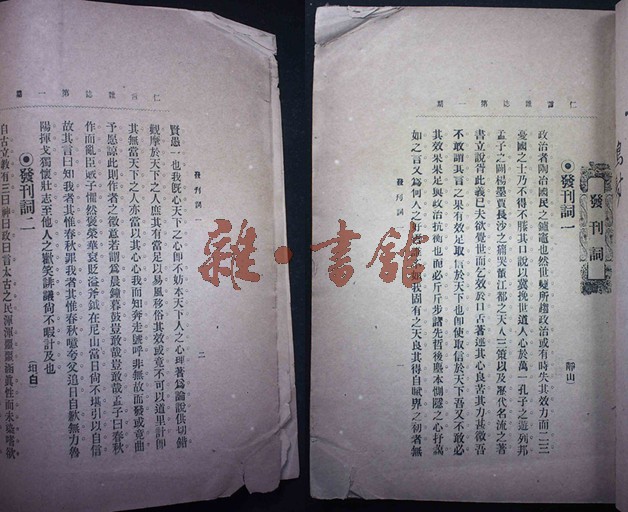 發刊詞
◎發刊詞一
靜山
政治者陶冶國民之鑪竈也然世變所趨政治或有時失其效力而一二三
憂國之士乃不得不騰其口說以冀挽世道人心於萬一孔子之遊列邦
孟子之闢楊墨賈長沙之痛哭董江都之天人三策以及歷代名流之著
書立說胥此義已夫欲覺世而乞效於口舌著述其心良苦其力甚微吾
不敢謂其言之果有效足取信於天下也卽使取信於天下吾又不敢必
其效果果足與政治抗衡也而必斤斤步諸先哲後塵本惻隱之心抒
如之言又爲何人之我固有之天良其得自賦畀之初者無
發刊詞
一
雜誌第一期
賢愚一也我旣心天下之心卽不妨本天下人之心理著爲論說供切錯
觀摩於天下之人庶其有當足以易風移俗其效或竟不可以道里計卽
其無當天下之人亦當以其心心我而知奔走號呼非無故而發或竟曲
予愿諒此則作者之微意若謂爲晨鐘暮鼓豈敢哉豈敢哉孟子曰春秋
作而亂臣賊子懼然褒榮華袞貶溢斧鉞在尼山當日尙不堪引以自信
故其言曰知我者其惟春秋罪我者其惟春秋噫夸父追日自歎無力魯
陽揮戈獨懷壯志至他人之獻笑誹議尙不暇計及也
◎發刊詞一
坦白
自古立敎有三曰神曰政曰言太古之民渾渾噩噩涵眞性而未染嗜欲
發刊詞一
二
雜誌第一期
雜·書館